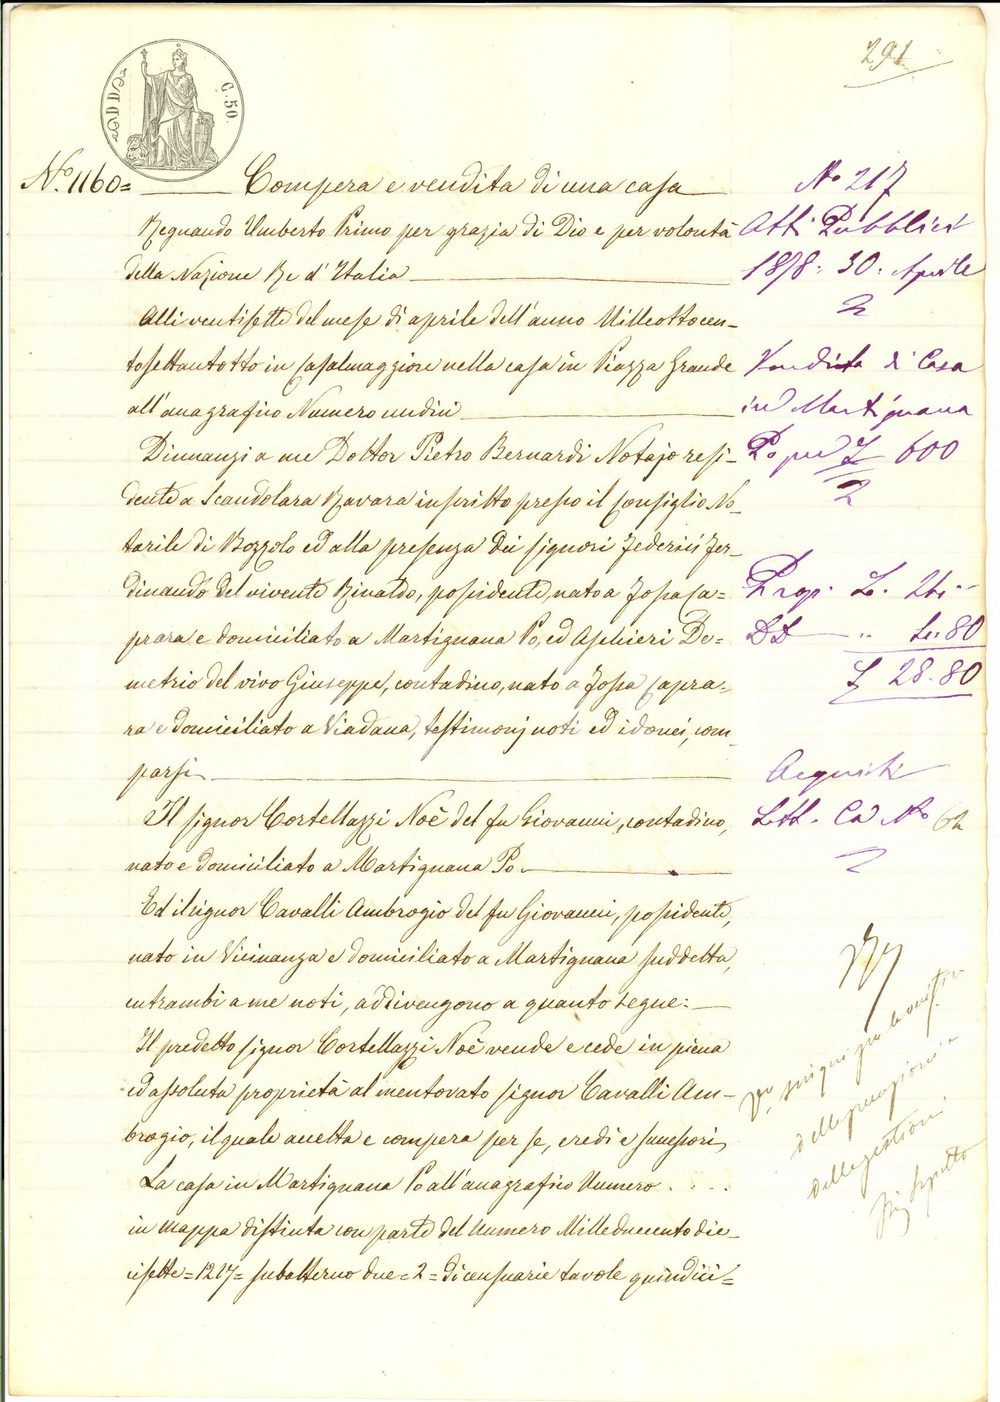 291
C. 50.
No. 1160= Compera e vendita di una casa
Regnando Umberto Primo per grazia di Dio e per volontà
della Nazione Re d'Italia
Alli ventisette del mese di aprile dell'anno Milleottocen-
tosettantotto in Casalmaggiore nella casa in Piazza Grande
all'anagrafico Numero undici
Dinnanzi a me Dottor Pietro Bernardi Notajo resi-
dente a Scandolara Ravara inscritto presso il Consiglio No-
tarile di Bozzolo ed alla presenza dei signori Federici Fer-
dinando del vivente Rinaldo, possidente, nato a Fossa Ca=
prara e domiciliato a Martignana Po, ed Aschieri De=
metrio del vivo Giuseppe, contadino, nato a Fossa Capra=
ra e domiciliato a Viadana, testimonj noti ed idonei, com-
parsi
Il signor Cortellazzi Noè del fu Giovanni, contadino,
nato e domiciliato a Martignana Po.
Ed il signor Cavalli Ambrogio del fu Giovanni, possidente,
nato in Vicinanza e domiciliato a Martignana suddetta,
entrambi a me noti, addivengono a quanto segue:
Il predetto signor Cortellazzi Noè vende e cede in piena
ed assoluta proprietà al mentovato signor Cavalli Am-
brogio, il quale accetta e compera per se, eredi e successori,
La casa in Martignana Po all'anagrafico Numero . . . .
in mappa distinta con parte del Numero Milleduecentodic-
cisette=1217= subalterno due=2= di censuarie tavole quindici=
No 217
Atti Pubblici
1878. 30. Aprile
2
Vendita di Casa
in Martignana
Po per £ 600
2
Prop. L. 24. --
DD " 4.80
£ 28.80
Acquisti
Lett. Ca No 62
2
delle